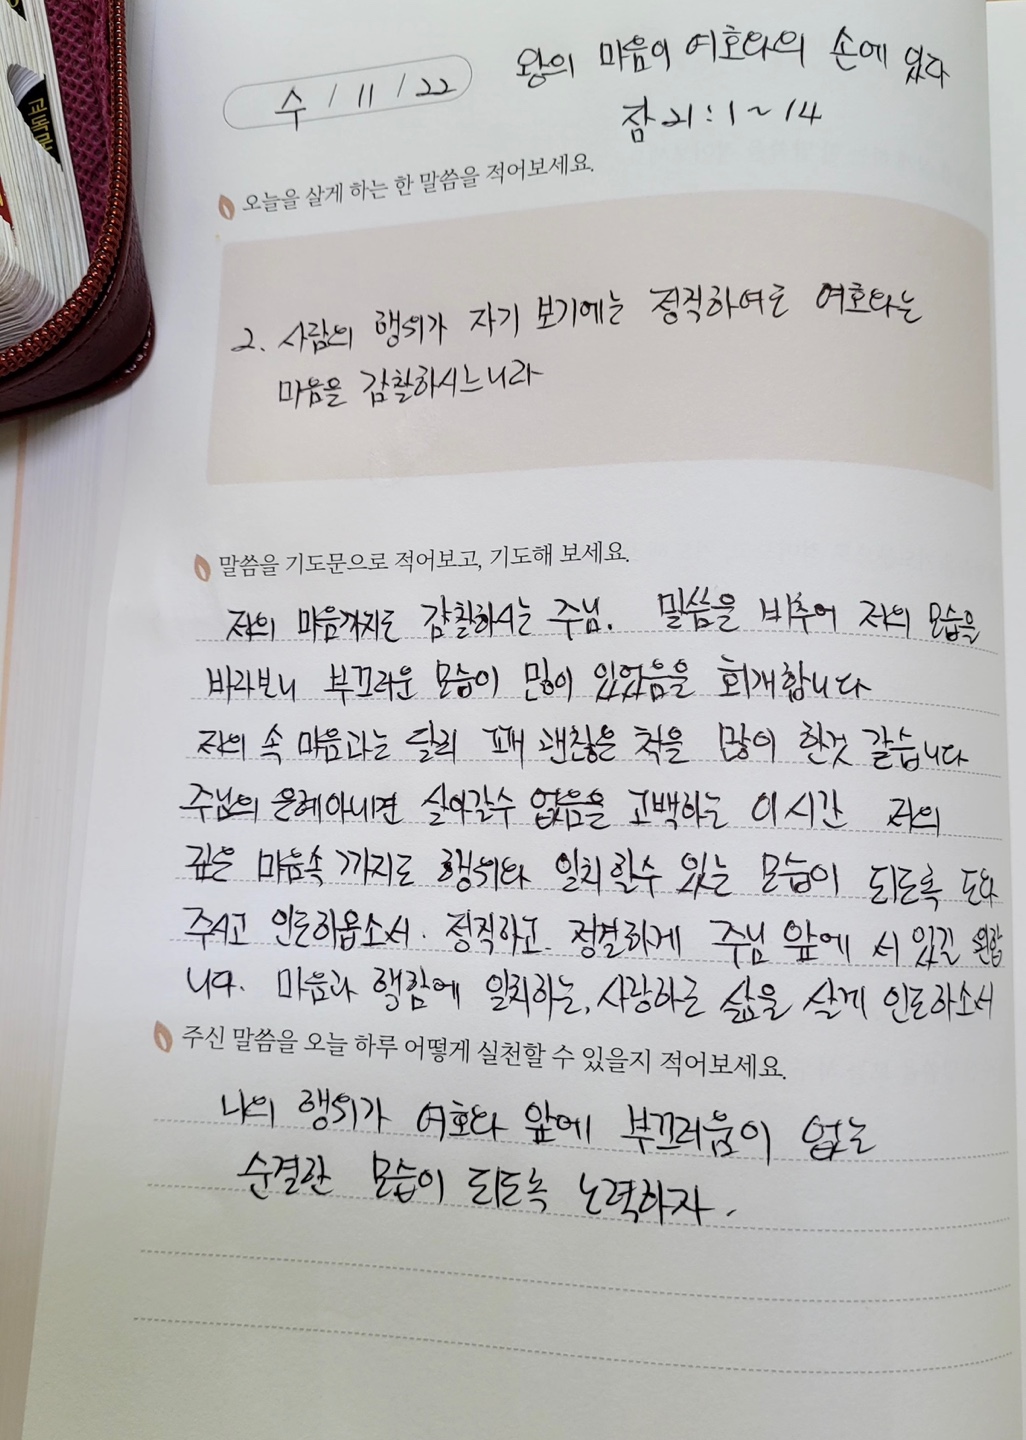 왕의 마음이 여호와의 손에 있다
수 / 11 / 22
잠 21 : 1 ~ 14
오늘을 살게 하는 한 말씀을 적어보세요.
2. 사람의 행위가 자기 보기에는 정직하여도 여호와는
마음을 감찰하시느니라
말씀을 기도문으로 적어보고, 기도해 보세요.
저의 마음까지도 감찰하시는 주님. 말씀을 비추어 저의 모습을
바라보니 부끄러운 모습이 많이 있었음을 회개합니다
저의 속 마음과는 달리 꽤 괜찮은 척을 많이 한것 같습니다
주님의 은혜아니면 살아갈수 없음을 고백하는 이 시간 저의
깊은 마음속 까지도 행위와 일치할수 있는 모습이 되도록 도와
주시고 인도하옵소서. 정직하고 정결하게 주님 앞에 서 있길 원합
니다. 마음과 행함에 일치하는, 사랑하는 삶을 살게 인도하소서
주신 말씀을 오늘 하루 어떻게 실천할 수 있을지 적어보세요.
나의 행위가 여호와 앞에 부끄러움이 없는
순결한 모습이 되도록 노력하자.